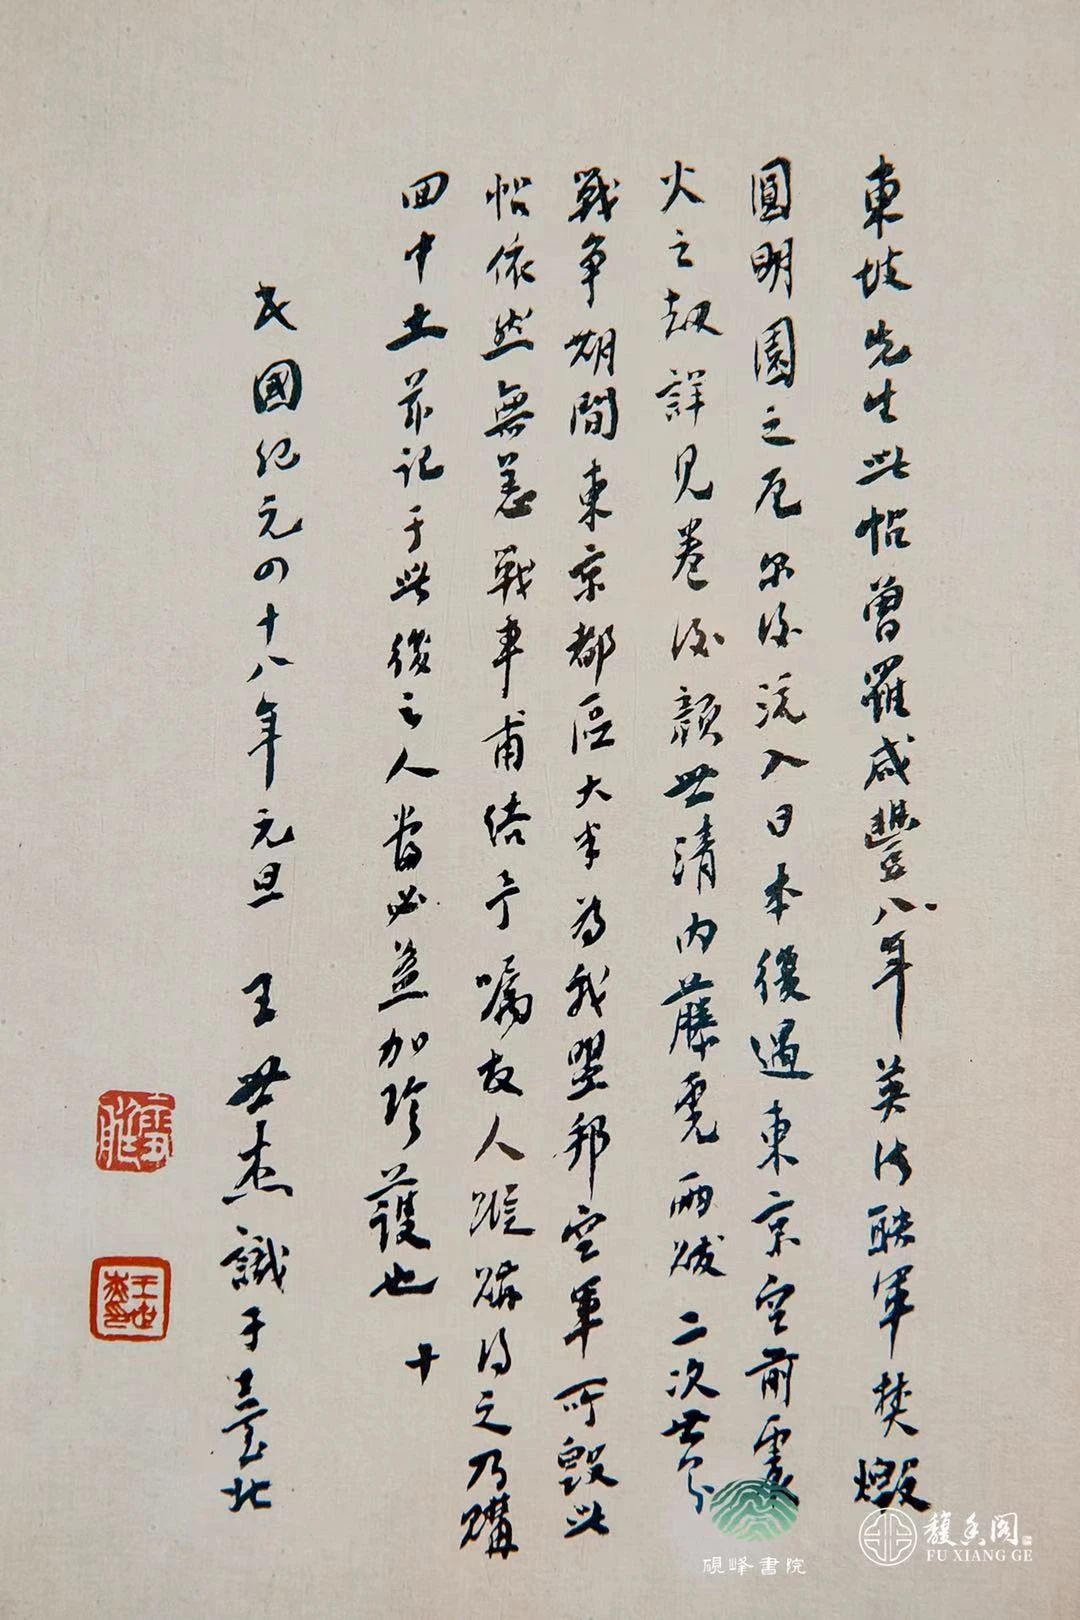 東坡先生此帖曾罹咸豐八年英法聯軍焚燬
圓明園之厄爾後流入日本復遇東京空前震
火之劫詳見卷後顏世清內藤虎兩跋二次世界
戰爭期間東京都區大半為我盟邦空軍所毀此
帖依然無恙戰事甫結予囑友人蹤跡得之乃購
回中土茲記于此後之人當必益加珍護也 十
民國紀元四十八年元旦 王世杰識于臺北
雪艇
王世杰印
硯峰書院
馥香閣
FU XIANG GE